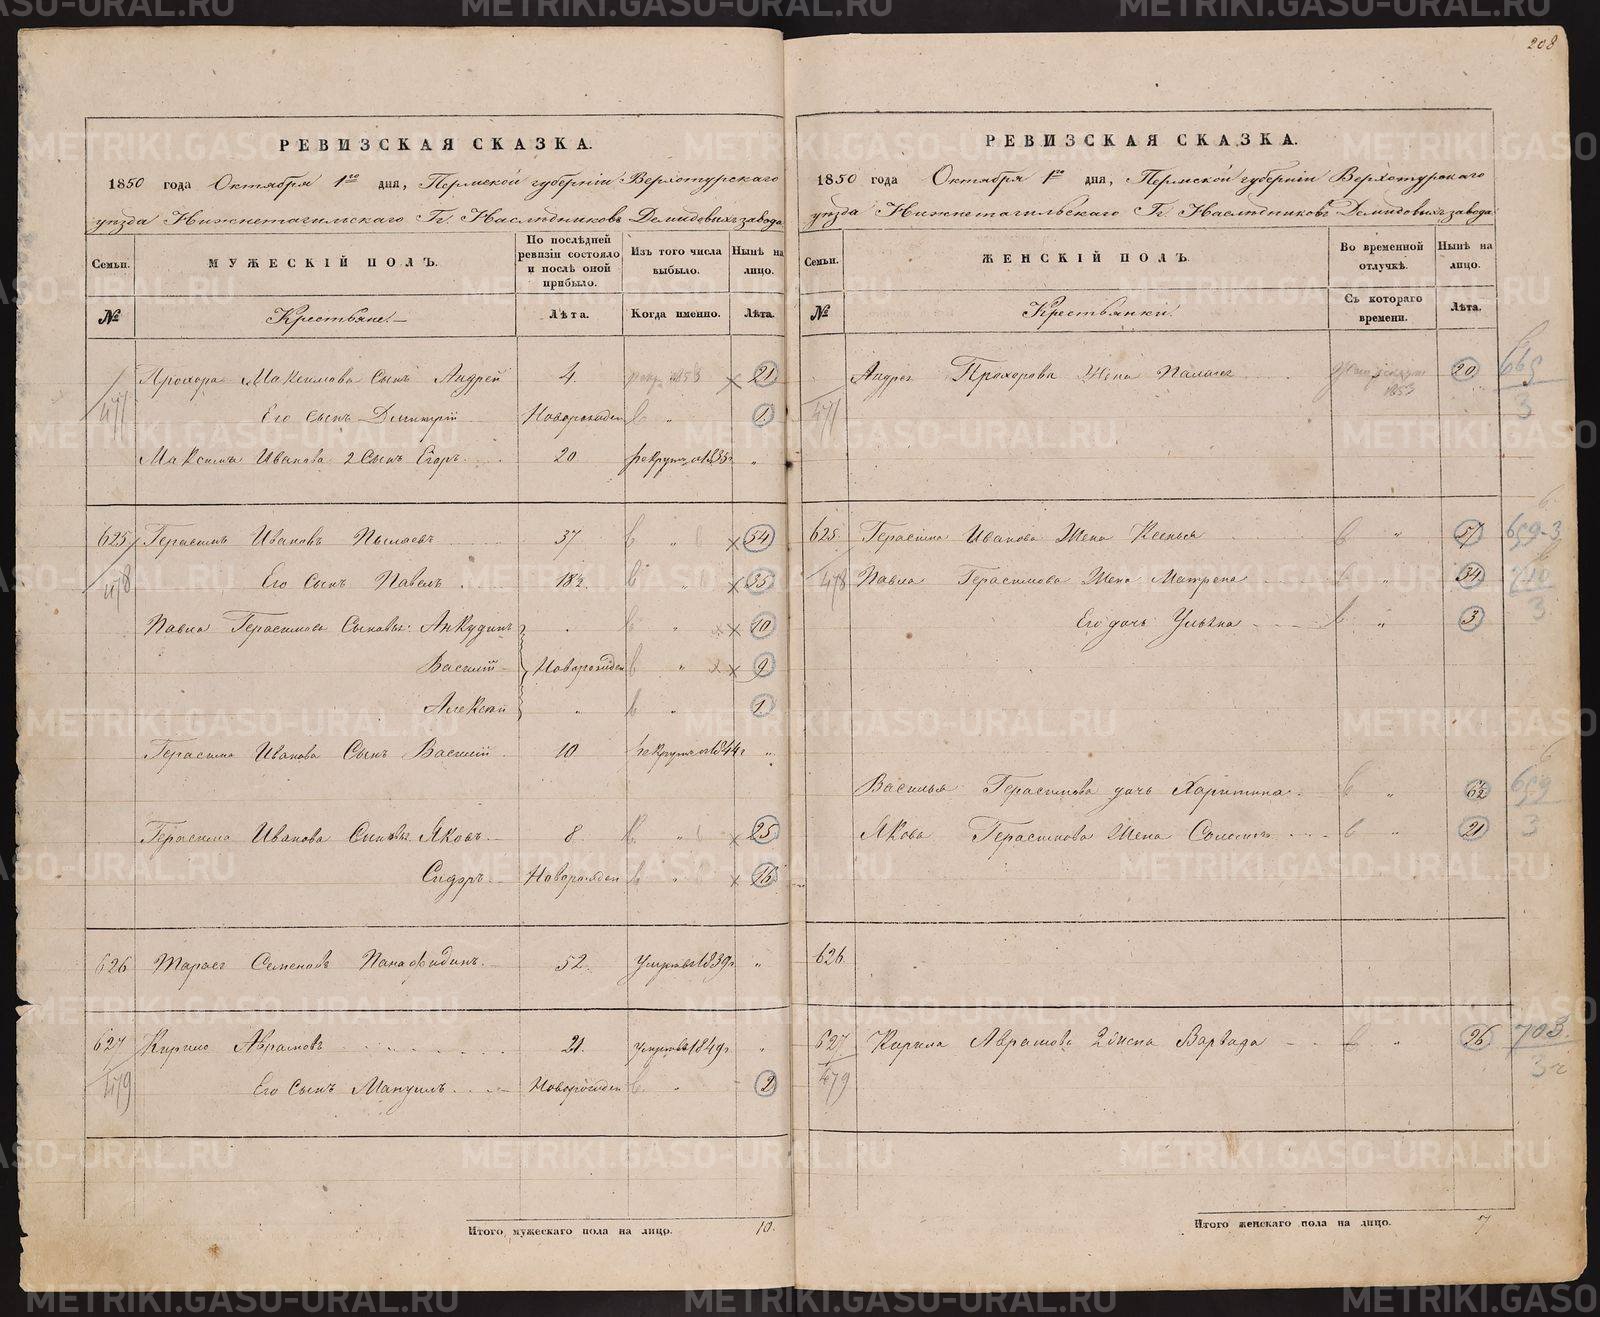 208
РЕВИЗСКАЯ СКАЗКА.
1850 года Октября 1го дня, Пермской губерніи Верхотурскаго
уѣзда Нижнетагильскаго Гг. Наслѣдниковъ Демидовыхъ завода
Семьи.
МУЖЕСКІЙ ПОЛЪ.
По послѣдней ревизіи состояло и послѣ оной прибыло.
Изъ того числа выбыло.
Нынѣ на лицо.
№
Крестьяне.
Лѣта.
Когда именно.
Лѣта.
Прохора Максимова Сынъ Андрей 4. 1853 21
477
Его Сынъ Дмитрій Новорожден 1.
Максима Иванова 2 Сынъ Егоръ 20 рекрут. с 1835г „
625 Герасимъ Ивановъ Пылаевъ 37 „ 54
478
Его Сынъ Павелъ 18½ „ 35
Павла Герасимова Сыновья: Анкудинъ „ 10
Василій Новорожден „ 9
Алексѣй „ 1.
Герасима Иванова Сынъ Василій 10 рекрут. с 1844г „
Герасима Иванова Сыновья Яковъ 8 „ 25
Сидоръ Новорожден „ 16
626 Тарасъ Семеновъ Панафидинъ 52. умеръ въ 1839г „
627 Кирило Аврамовъ 21. умеръ въ 1849г „
479
Его Сынъ Мануилъ Новорожден „ 2
Итого мужескаго пола на лицо. 10.
РЕВИЗСКАЯ СКАЗКА.
1850 года Октября 1го дня, Пермской губерніи Верхотурскаго
уѣзда Нижнетагильскаго Гг. Наслѣдниковъ Демидовыхъ завода
Семьи.
ЖЕНСКІЙ ПОЛЪ.
Во временной отлучкѣ.
Нынѣ на лицо.
№
Крестьянки.
Съ котораго времени.
Лѣта.
Андрея Прохорова Жена Палагея 1853 20
477
665
3
625. Герасима Иванова Жена Ксенья „ 57 659-3
478 Павла Герасимова Жена Матрена „ 34 740
3
Его дочь Ульяна „ 3
Василья Герасимова дочь Харитина „ 6½ 659
3
Якова Герасимова Жена Соломея „ 21
626.
627 Кирила Аврамова 2 жена Варвара „ 26 703.
479
3
Итого женскаго пола на лицо. 7
METRIKI.GASO-URAL.RU